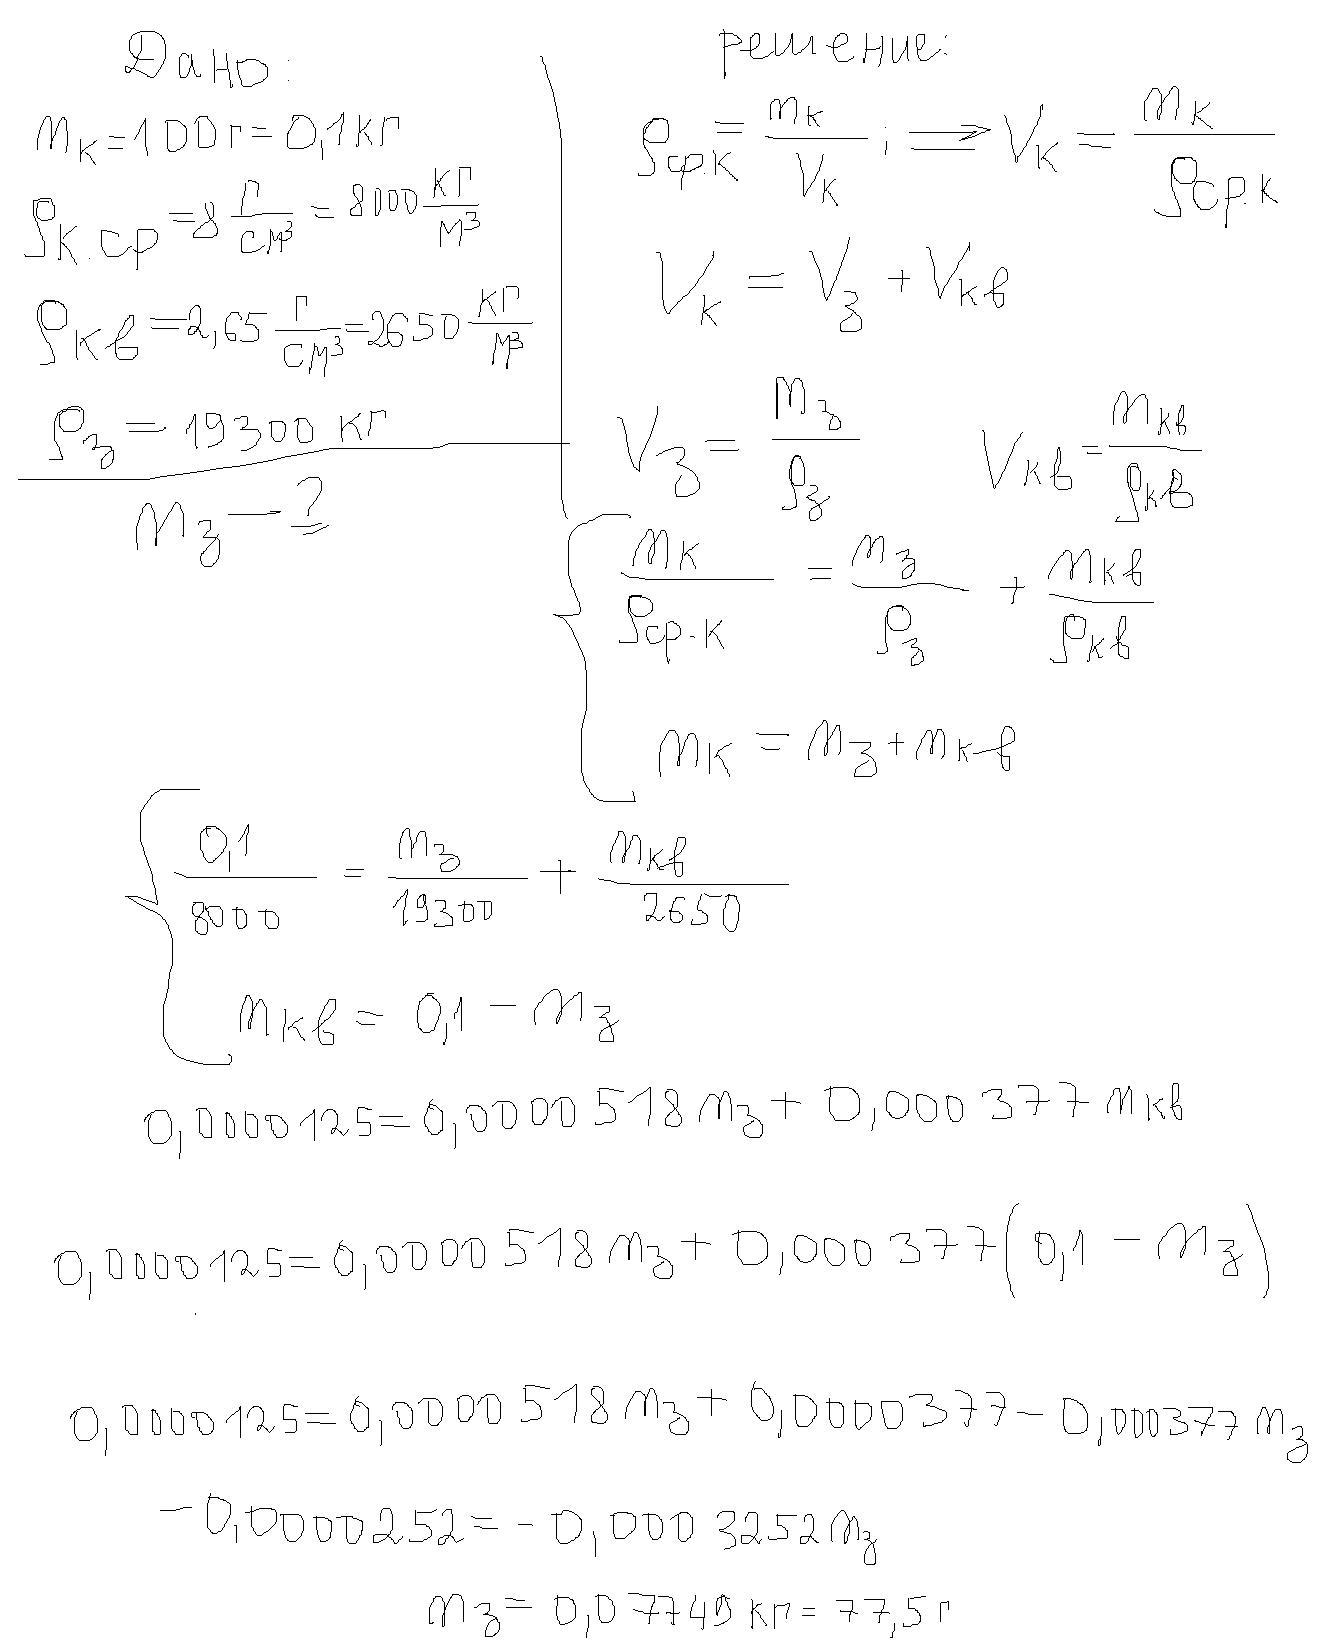 Дано:
m_к = 100 г = 0,1 кг
ρ_к.ср = 8 г/см³ = 8000 кг/м³
ρ_кв = 2,65 г/см³ = 2650 кг/м³
ρ_з = 19300 кг
m_з — ?
решение:
ρ_ср.к = m_к/V_к ; ⟹ V_к = m_к/ρ_ср.к
V_к = V_з + V_кв
V_з = m_з/ρ_з V_кв = m_кв/ρ_кв
{ m_к/ρ_ср.к = m_з/ρ_з + m_кв/ρ_кв
m_к = m_з + m_кв
{ 0,1/8000 = m_з/19300 + m_кв/2650
m_кв = 0,1 − m_з
0,0000125 = 0,0000518 m_з + 0,000377 m_кв
0,0000125 = 0,0000518 m_з + 0,000377 (0,1 − m_з)
0,0000125 = 0,0000518 m_з + 0,0000377 − 0,000377 m_з
− 0,0000252 = − 0,0003252 m_з
m_з = 0,07749 кг = 77,5 г